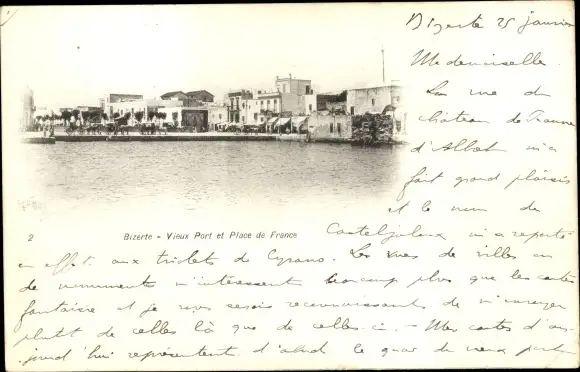 Bizerte 25 janvier
Mademoiselle.
La vue du
château de Jeanne
d'Albret m'a
fait grand plaisir
et le nom de
2 Bizerte - Vieux Port et Place de France
Casteljaloux m'a reporté
en effet aux triolets de Cyrano. Les vues de villes ou
de monuments m'intéressent beaucoup plus que les cartes
fantaisie et je vous serais reconnaissant de m'envoyer
plutôt de celles là que de celles-ci - Mes cartes d'au-
jourd'hui représentent d'abord le quai du vieux port